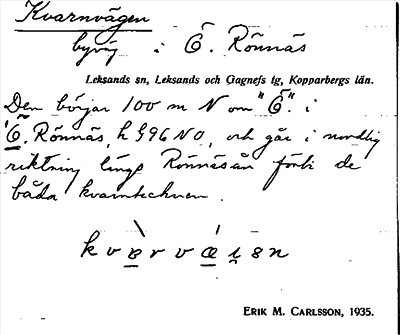 Kvarnvägen
byväg i Ö. Rönnäs
Leksands sn, Leksands och Gagnefs tg, Kopparbergs län.
Den börjar 100 m N om "Ö." i
Ö. Rönnäs, h 396 NO, och går i nordlig
riktning längs Rönnäsån förbi de
båda kvarntechnen.
kvarvæisn
ERIK M. CARLSSON, 1935.